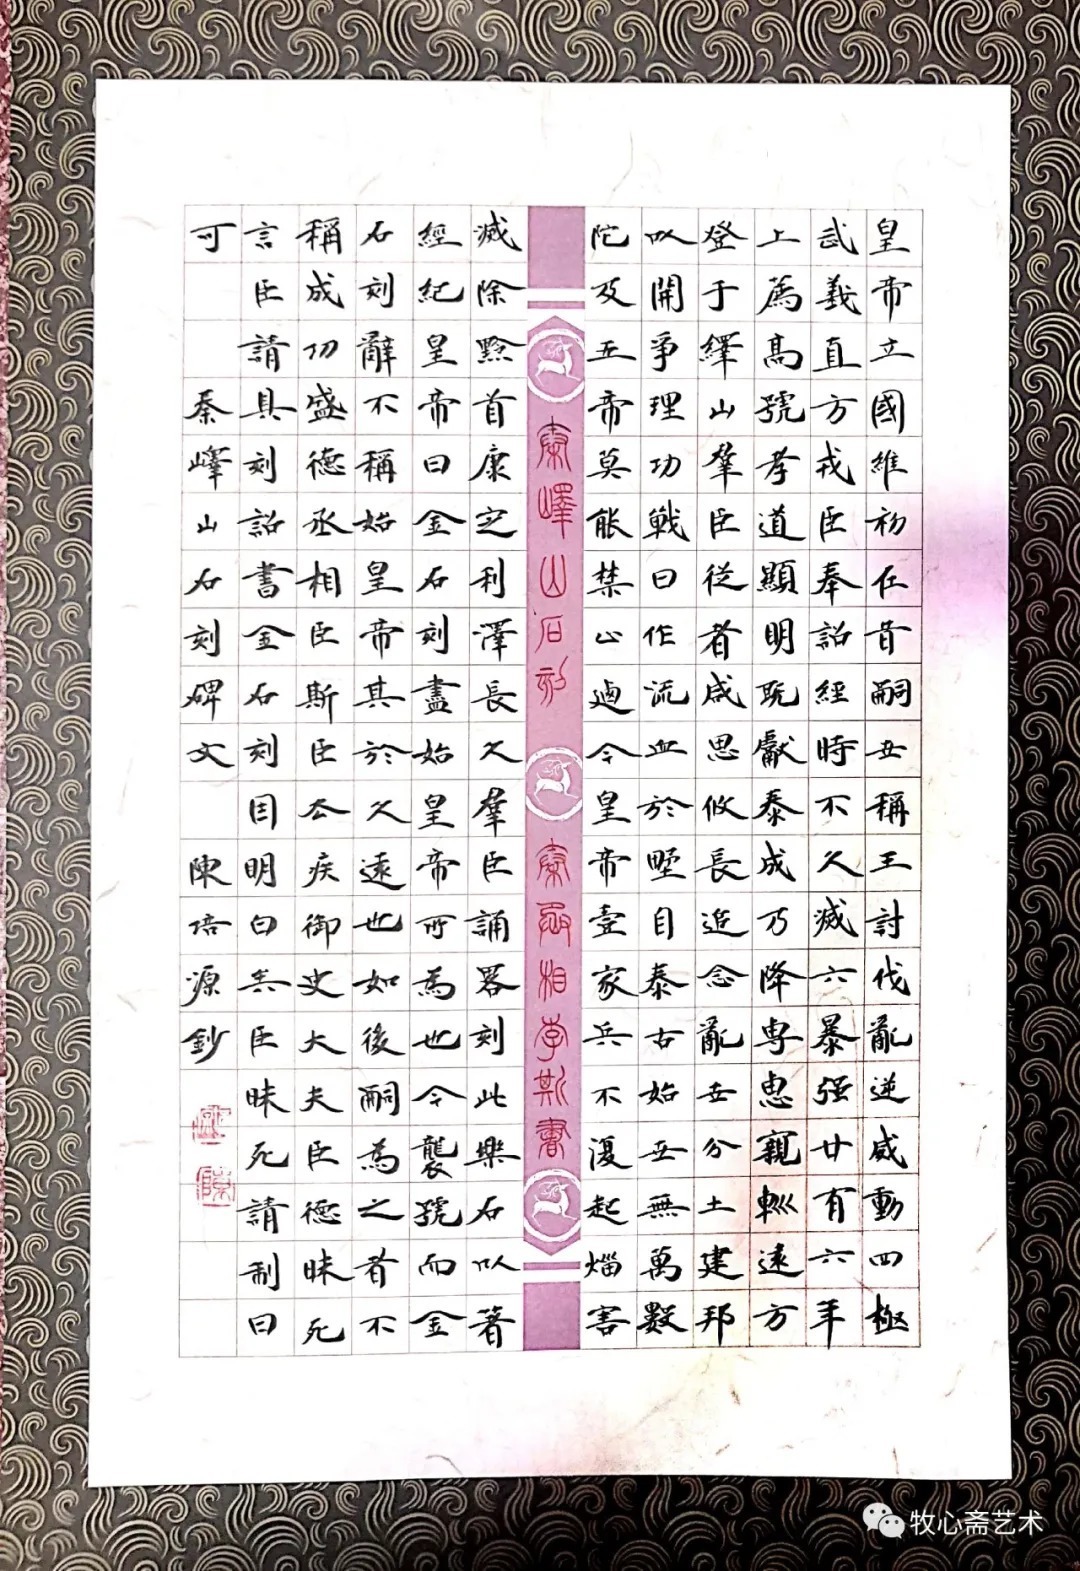 皇帝立國維初在昔嗣世稱王討伐亂逆威動四極
武義直方戎臣奉詔經時不久滅六暴强廿有六年
上薦高號孝道顯明既獻泰成乃降専惠親巡遠方
登于繹山羣臣從者咸思攸長追念亂世分土建邦
以開爭理功戰日作流血於野自泰古始世無萬數
陀及五帝莫能禁止迺今皇帝壹家兵不復起災害
秦嶧山石刻 秦丞相李斯書
滅除黔首康定利澤長久羣臣誦畧刻此樂石以著
經紀皇帝曰金石刻盡始皇帝所為也今襲號而金
石刻辭不稱始皇帝其於久遠也如後嗣為之者不
稱成功盛德丞相臣斯臣去疾御史大夫臣德昧死
言臣請具刻詔書金石刻因明白矣臣昧死請制曰
可 秦嶧山石刻碑文 陳培源鈔
牧心斋艺术